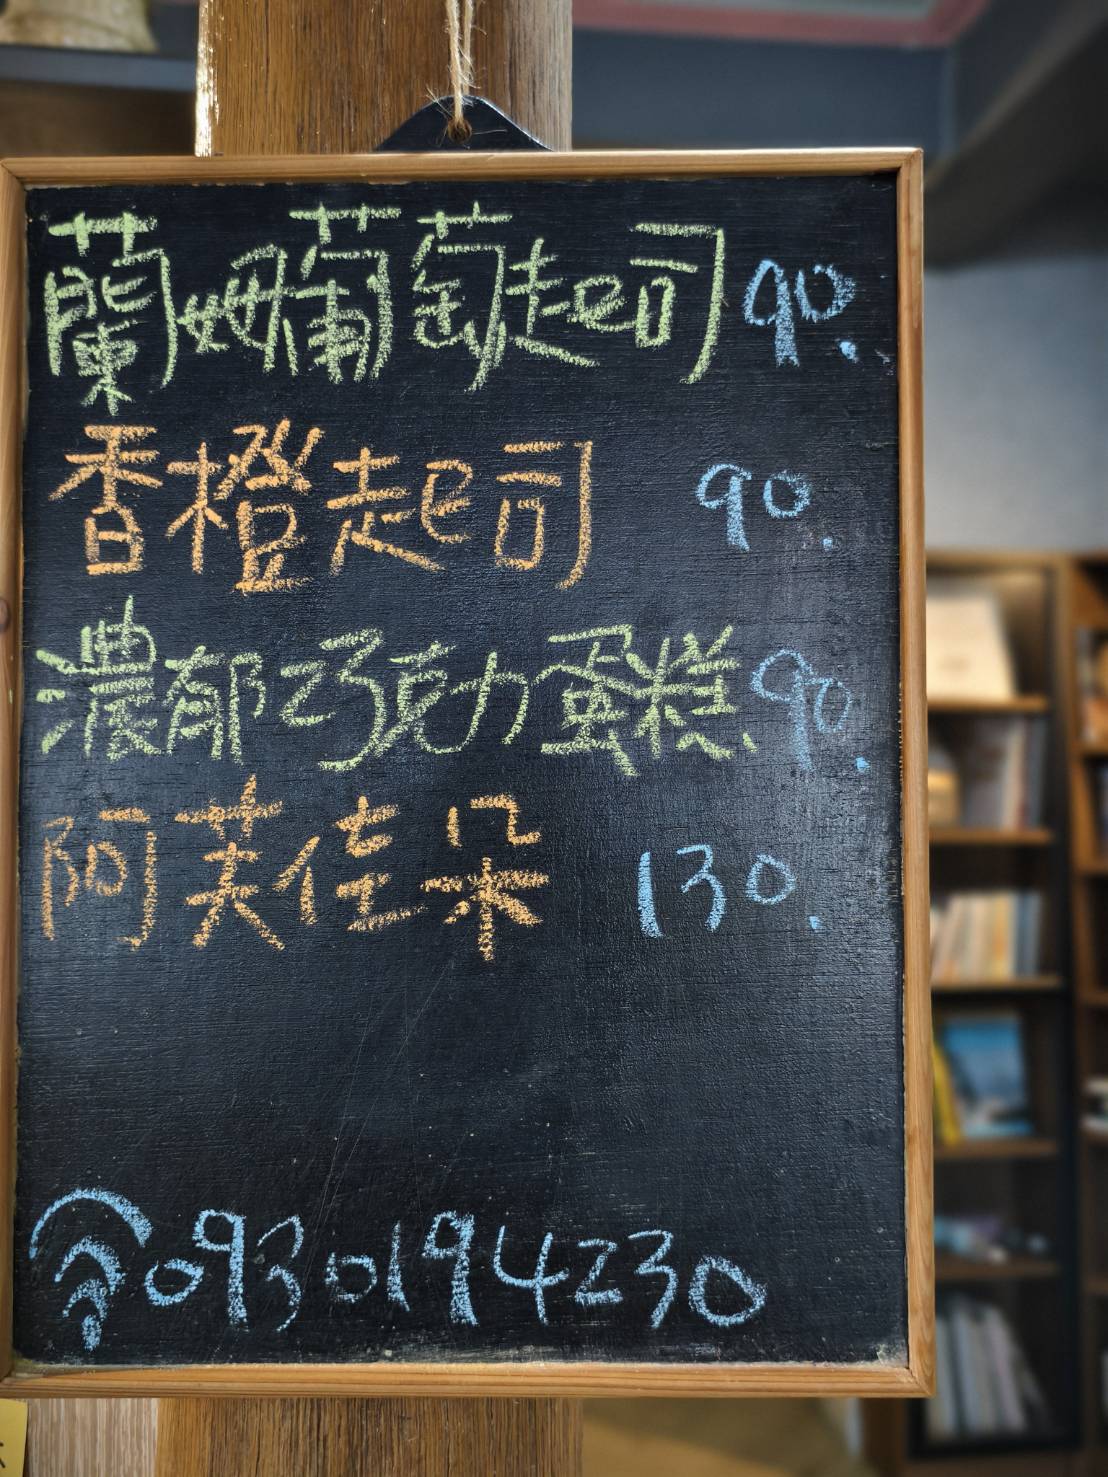 蘭姆葡萄起司 90.
香橙起司 90.
濃郁巧克力蛋糕 90.
阿芙佳朵 130.
0930194230